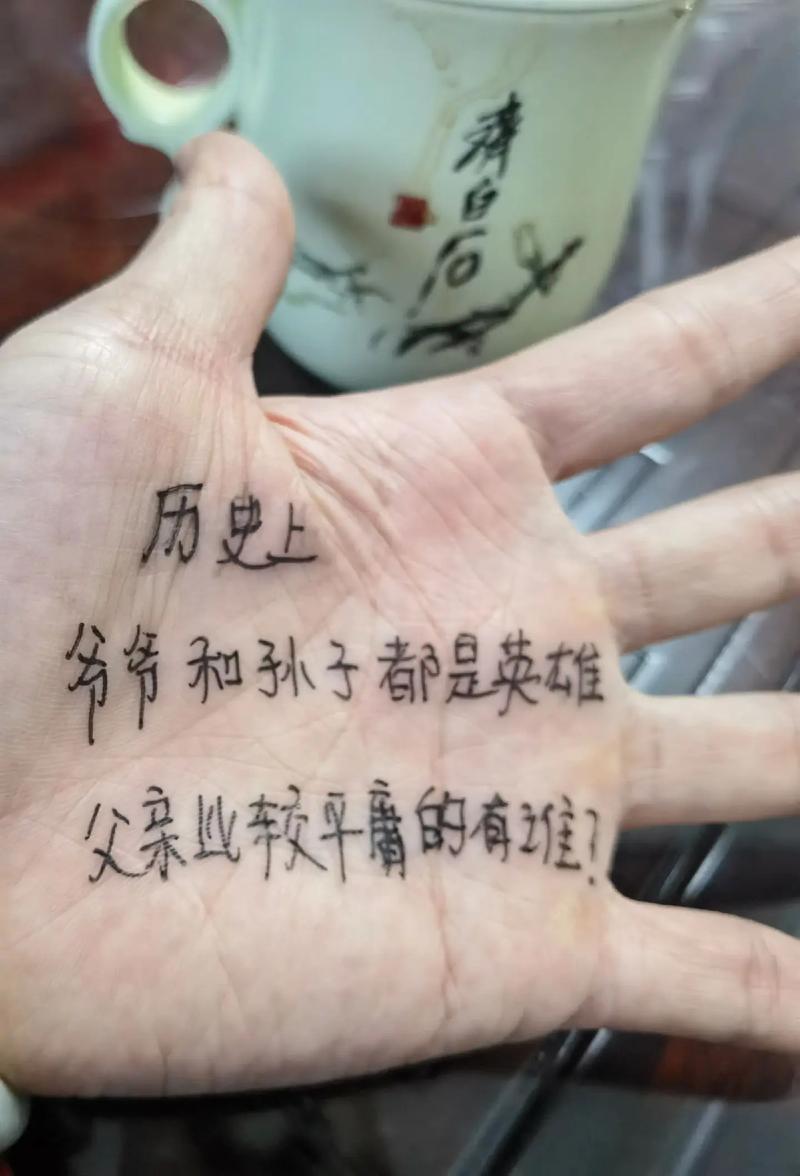 齊白石
历史上
爷爷和孙子都是英雄
父亲比较平庸的有谁?